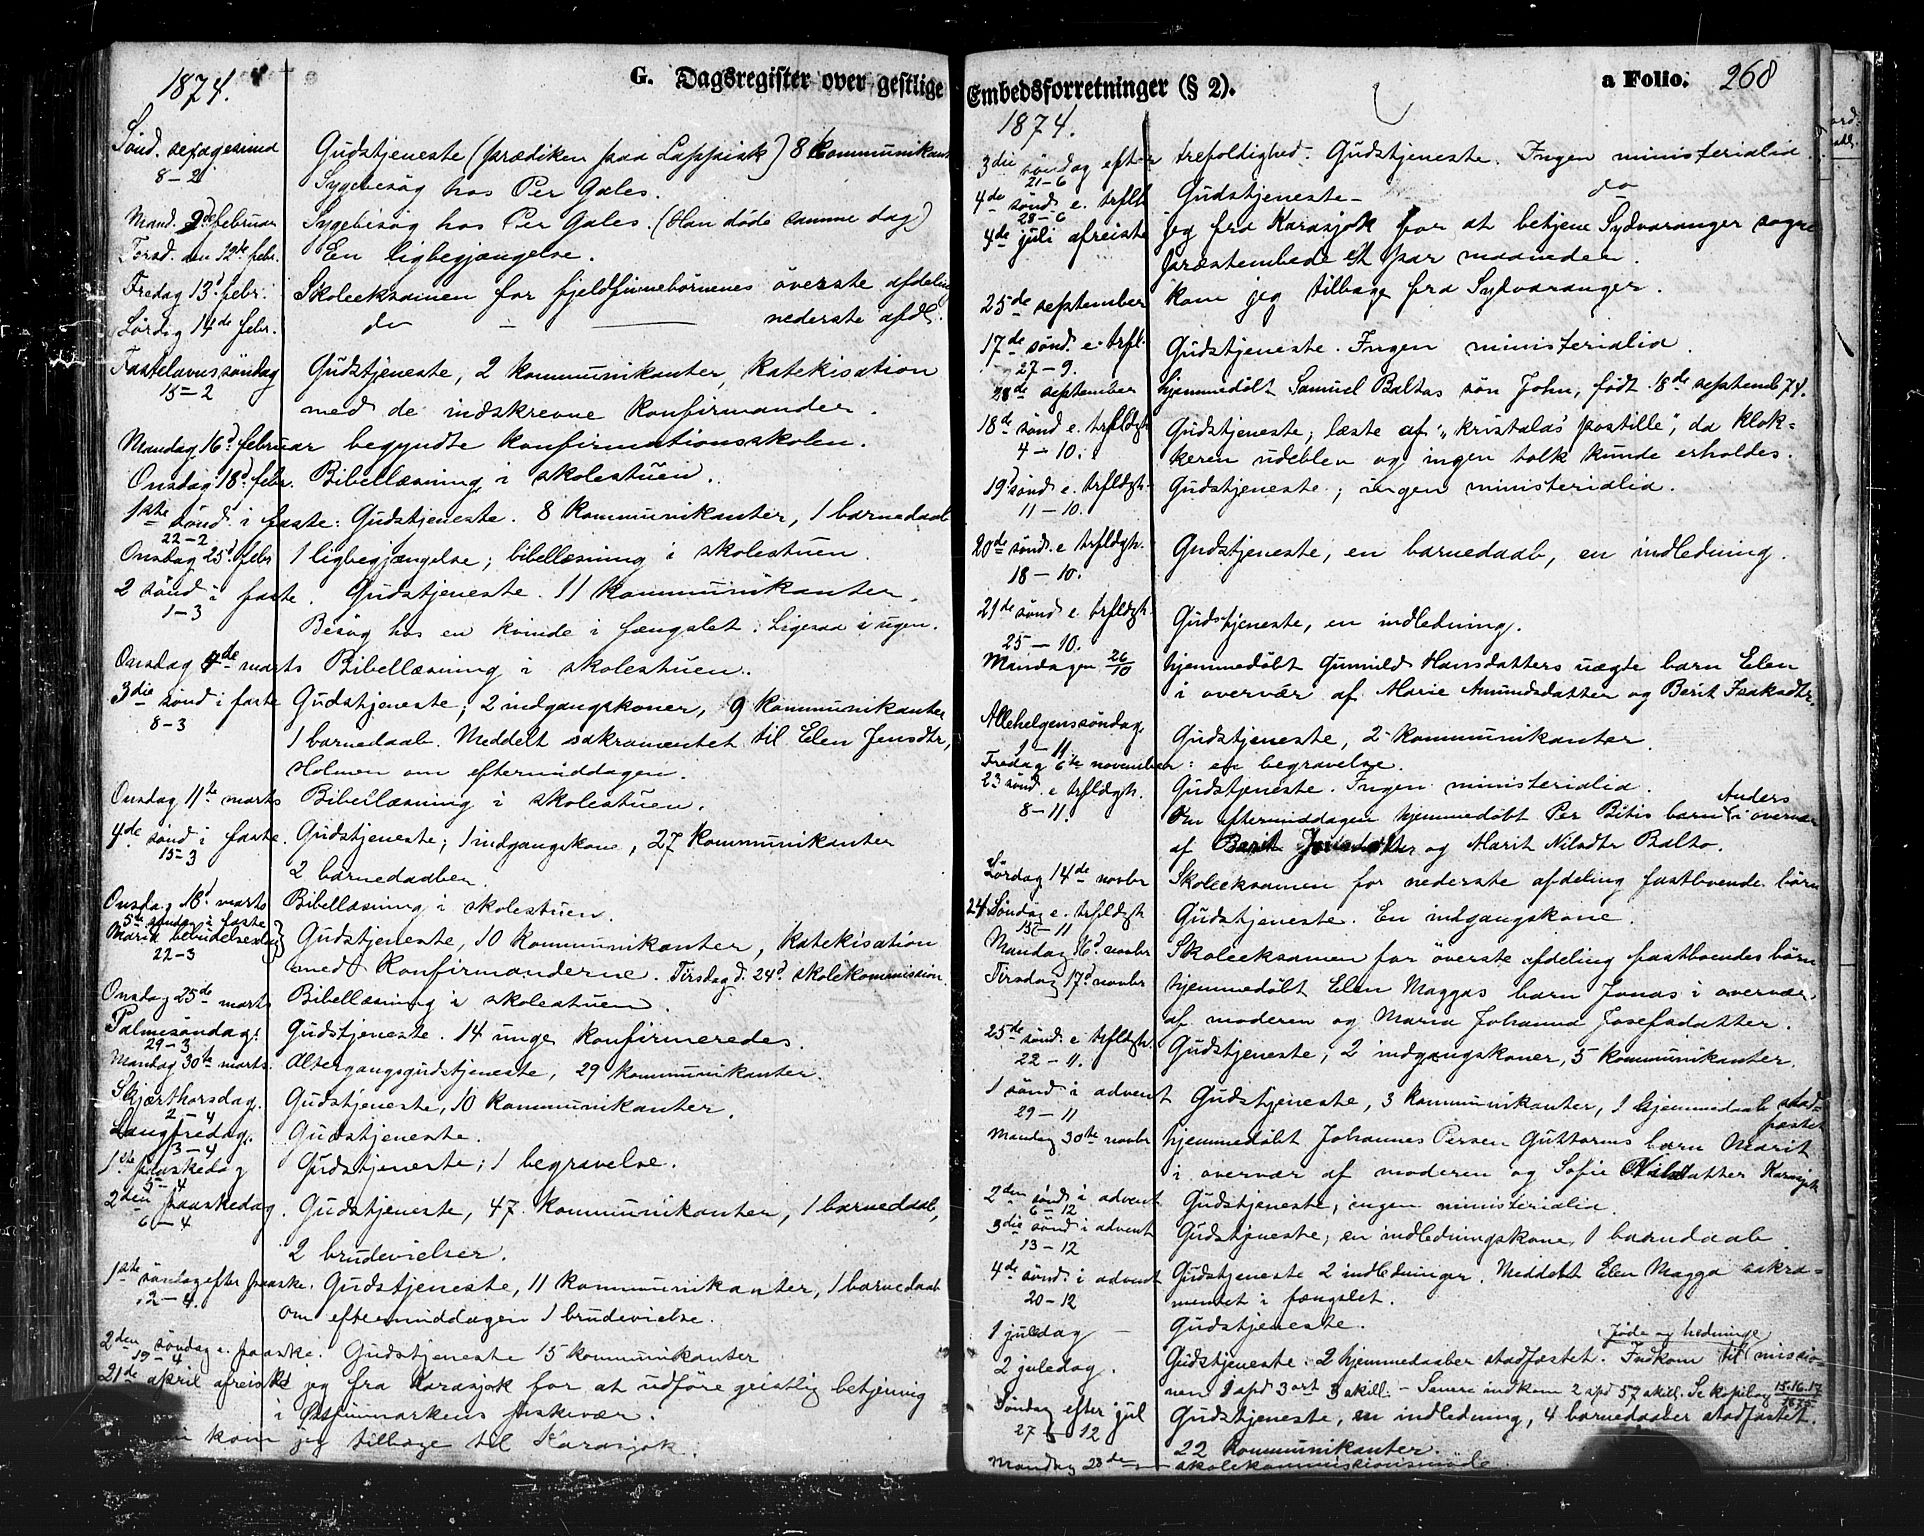 G. Dagsregister over gestlige
1874.
Sönd. sexagesima Gudstjeneste (prædiken paa Lappisk) 8 kommunikant
8-2 Sygebesög hos Per Gales.
Mand. 9de februar Sygebesög hos Per Gales. (Han döde samme dag)
Torsd. den 12te febr. En ligbegjængelse.
Fredag 13d febr. Skoleeksamen for fjeldfinnebörnenes överste afdeling
Lördag 14de febr. do - nederste afdl.
Fastelavnssöndag Gudstjeneste, 2 kommunikanter, Katekisation
15-2 med de indskrevne konfirmander.
Mandag 16d februar begyndte konfirmationsskolen.
Onsdag 18d febr. Bibellæsning i skolestuen.
1ste sönd. i faste: Gudstjeneste. 8 kommunikanter, 1 barnedaab
22-2
Onsdag 25d febr 1 ligbegjængelse; bibellæsning i skolestuen.
2 sönd i faste. Gudstjeneste. 11 kommunikanter.
1-3
Besög hos en kvinde i fængslet. Ligesaa i ugen.
Onsdag 4de marts Bibellæsning i skolestuen.
3die sönd i faste Gudstjeneste; 2 indgangskoner, 9 kommunikanter
8-3 1 barnedaab. Meddelt sakramentet til Elen Jensdtr,
Holmen om eftermiddagen.
Onsdag 11te marts Bibellæsning i skolestuen.
4de sönd i faste. Gudstjeneste; 1 indgangskone, 27 kommunikanter
15-3
2 barnedaaber.
Onsdag 18d marts Bibellæsning i skolestuen.
5te söndag i faste
Mariæ bebudelsesdag Gudstjeneste, 10 kommunikanter, Katekisation
22-3 med konfirmanderne. Tirsdag d. 24d skolekommission.
Onsdag 25de marts Bibellæsning i skolestuen.
Palmesöndag. Gudstjeneste. 14 unge konfirmeredes.
29-3
Mandag 30te marts. Altergangsgudstjeneste, 29 kommunikanter.
Skjærthorsdag. Gudstjeneste, 10 kommunikanter.
2-4
Langfredag. Gudstjeneste.
3-4
1ste paaskedag Gudstjeneste; 1 begravelse.
5-4
2den paaskedag. Gudstjeneste, 47 kommunikanter, 1 barnedaab,
6-4
2 brudevielser.
1ste söndag efter paaske. Gudstjeneste, 11 kommunikanter, 1 barnedaab
12-4. om eftermiddagen 1 brudevielse.
2den söndag e. paaske. Gudstjeneste 15 kommunikanter
19-4
21de april afreiste jeg fra Karasjok for at udföre geistlig betjening
i Östfinmarkens fiskevær.
kom jeg tilbage til Karasjok.
Embedsforretninger (§ 2). a Folio. 268
1874.
3die söndag efter trefoldighed. Gudstjeneste. Ingen ministerialia.
21-6
4de sönd. e. trflt Gudstjeneste - do
28-6
4de juli afreiste jeg fra Karasjok for at betjene Sydvaranger sogne
præstembede et par maaneder.
25de september kom jeg tilbage fra Sydvaranger.
17de sönd. e. trfl. Gudstjeneste. Ingen ministerialia.
27-9.
28de september hjemmedöbt Samuel Baltos sön John, födt 18de septemb 74.
18de sönd e. trfldgh Gudstjeneste; læste af "kristalas postille", da klok-
4-10. keren udeblev og ingen tolk kunde erholdes.
19d sönd e. trfldgh. Gudstjeneste; ingen ministerialia.
11-10.
20de sönd. e trfldgh. Gudstjeneste, en barnedaab, en indledning.
18-10.
21de sönd e. trfldgh. Gudstjeneste, en indledning.
25-10.
Mandagen 26/10 hjemmedöbt Gunnild Hansdatters uægte barn Elen
i overvær af Marie Amundsdatter og Berit Isaksdtr.
Allehelgenssöndag. Gudstjeneste, 2 kommunikanter.
1-11
Fredag 6te november: en begravelse.
23 sönd. e trfldgh. Gudstjeneste. Ingen ministerialia.
8-11. Om eftermiddagen hjemmedöbt Per Bitis barn Anders i overvær
af Berit og Marit Nilsdtr Balto.
Lördag 14de novbr Skoleeksamen for nederste afdeling fastboende börn
24 Söndag e. trfldgh Gudstjeneste. En indgangskone.
15-11
Mandag 16d novbr Skoleeksamen for överste afdeling fastboendes börn
Tirsdag 17d novbr hjemmedöbt Elen Maggas barn Jonas i overvær
af moderen og Maria Johanna Josefsdatter.
25de sönd. e trfldgh. Gudstjeneste, 2 indgangskoner, 5 kommunikanter.
22-11.
1 sönd. i advent Gudstjeneste, 3 kommunikanter, 1 hjemmedaab stad-
29-11 fæstet
Mandag 30te novbr hjemmedöbt Johannes Persen Guttorms barn Marit
i overvær af moderen og Sofie Nilsdatter Karasjok
2den sönd. i advent Gudstjeneste; ingen ministerialia.
6-12
3die sönd i advent Gudstjeneste; en indledningskone, 1 barnedaab.
13-12
4de sönd. i advent Gudstjeneste 2 indledninger. Meddelt Elen Magga sakra-
20-12 mentet i fængslet.
1 juledag - Gudstjeneste.
Jöde og hedninge
2 juledag. Gudstjeneste 2 hjemmedaaber stadfæstet. Indkom til missio-
nen 1 spd 3 ort 3 skill. - Senere indkom 2 spd 57 skill. Se kopibog 15.16.17
Söndag efter jul Gudstjeneste, en indledning, 4 barnedaaber stadfæstet.
27-12
22 kommunikanter.
Mandag 28de - skolekommissionsmöde